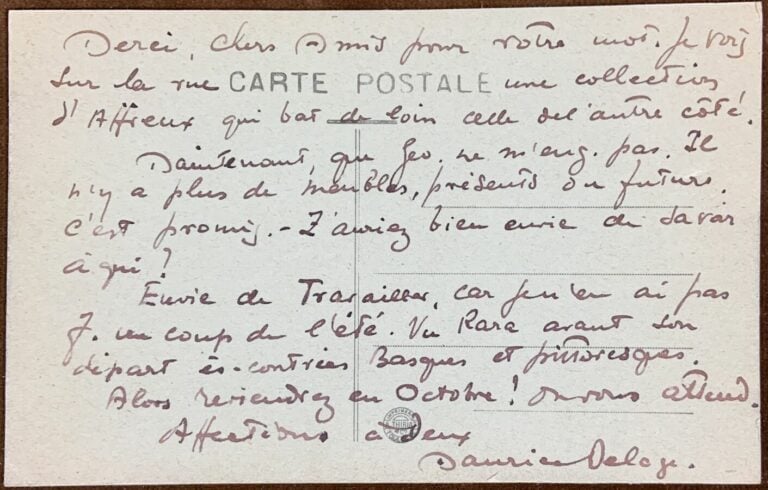 Merci, chers Amis pour votre mot. Je vois
sur la rue une collection
CARTE POSTALE
d'Affreux qui bat de loin celle de l'autre côté.
Maintenant, que Geo. ne m'eng. pas. Il
n'y a plus de meubles, présents ou futurs.
C'est promis. - Z'auriez bien envie de savoir
à qui ?
Envie de Travailler, car je n'en ai pas
f. un coup de l'été. Vu Rara avant son
départ ès-contrées Basques et pittoresques.
Alors reviendrez en Octobre ! on vous attend.
Affections à deux
Maurice Delage.